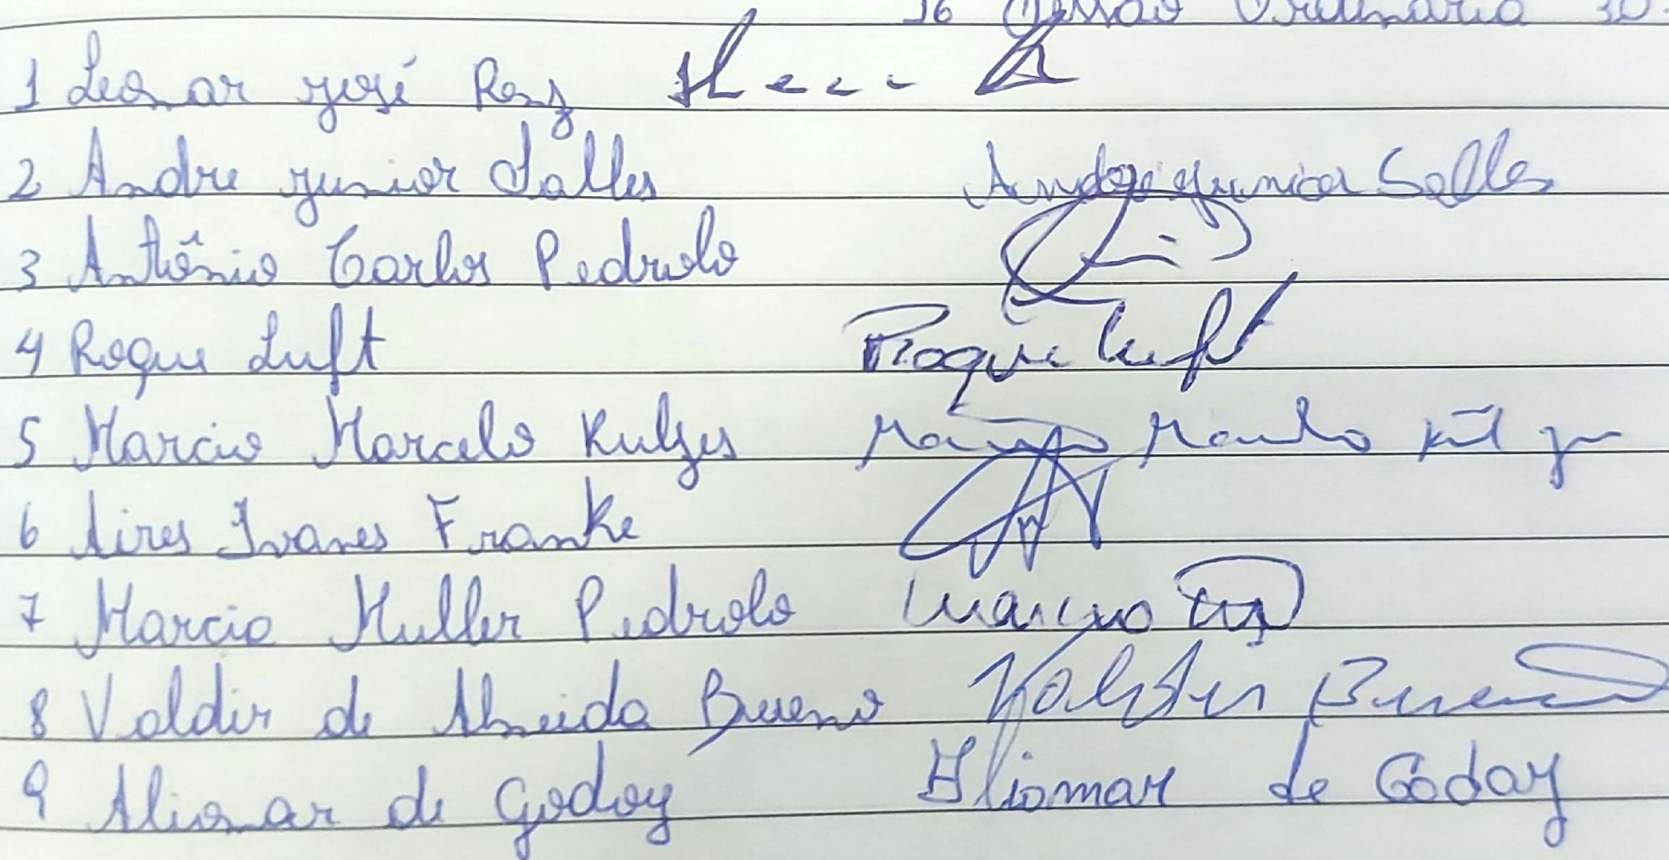 16 Sessão Ordinária 30
1 Leomar José Renz
2 Andre Junior Salles Andre Junior Salles
3 Antônio Carlos Pedrolo
4 Roque Luft Roque Luft
5 Marcio Marcelo Marcio Marcelo
6 Aires Ivanes Franke
7 Marcio Muller Pedrolo Marcio
8 Valdir de Almeida Bueno Valdir Bueno
9 Aliomar de Godoy Aliomar de Godoy